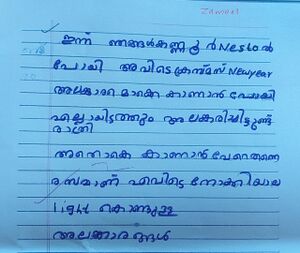 Zamaan
ഇന്ന് ഞങ്ങൾ കണ്ണൂർ Nestoൽ
പോയി അവിടെ ക്രസ്മസ് Newyear
അലങ്കാരമൊക്കെ കാണാൻ പോയി
എല്ലായിടത്തും അലങ്കരിച്ചിട്ടുണ്ട്
രാത്രി
അതൊകെ കാണാൻ പോതന്നെ
രസമാണ് എവിടെ നോക്കിയാല
light കൊണ്ടുള്ള
അലങ്കാരങ്ങൾ